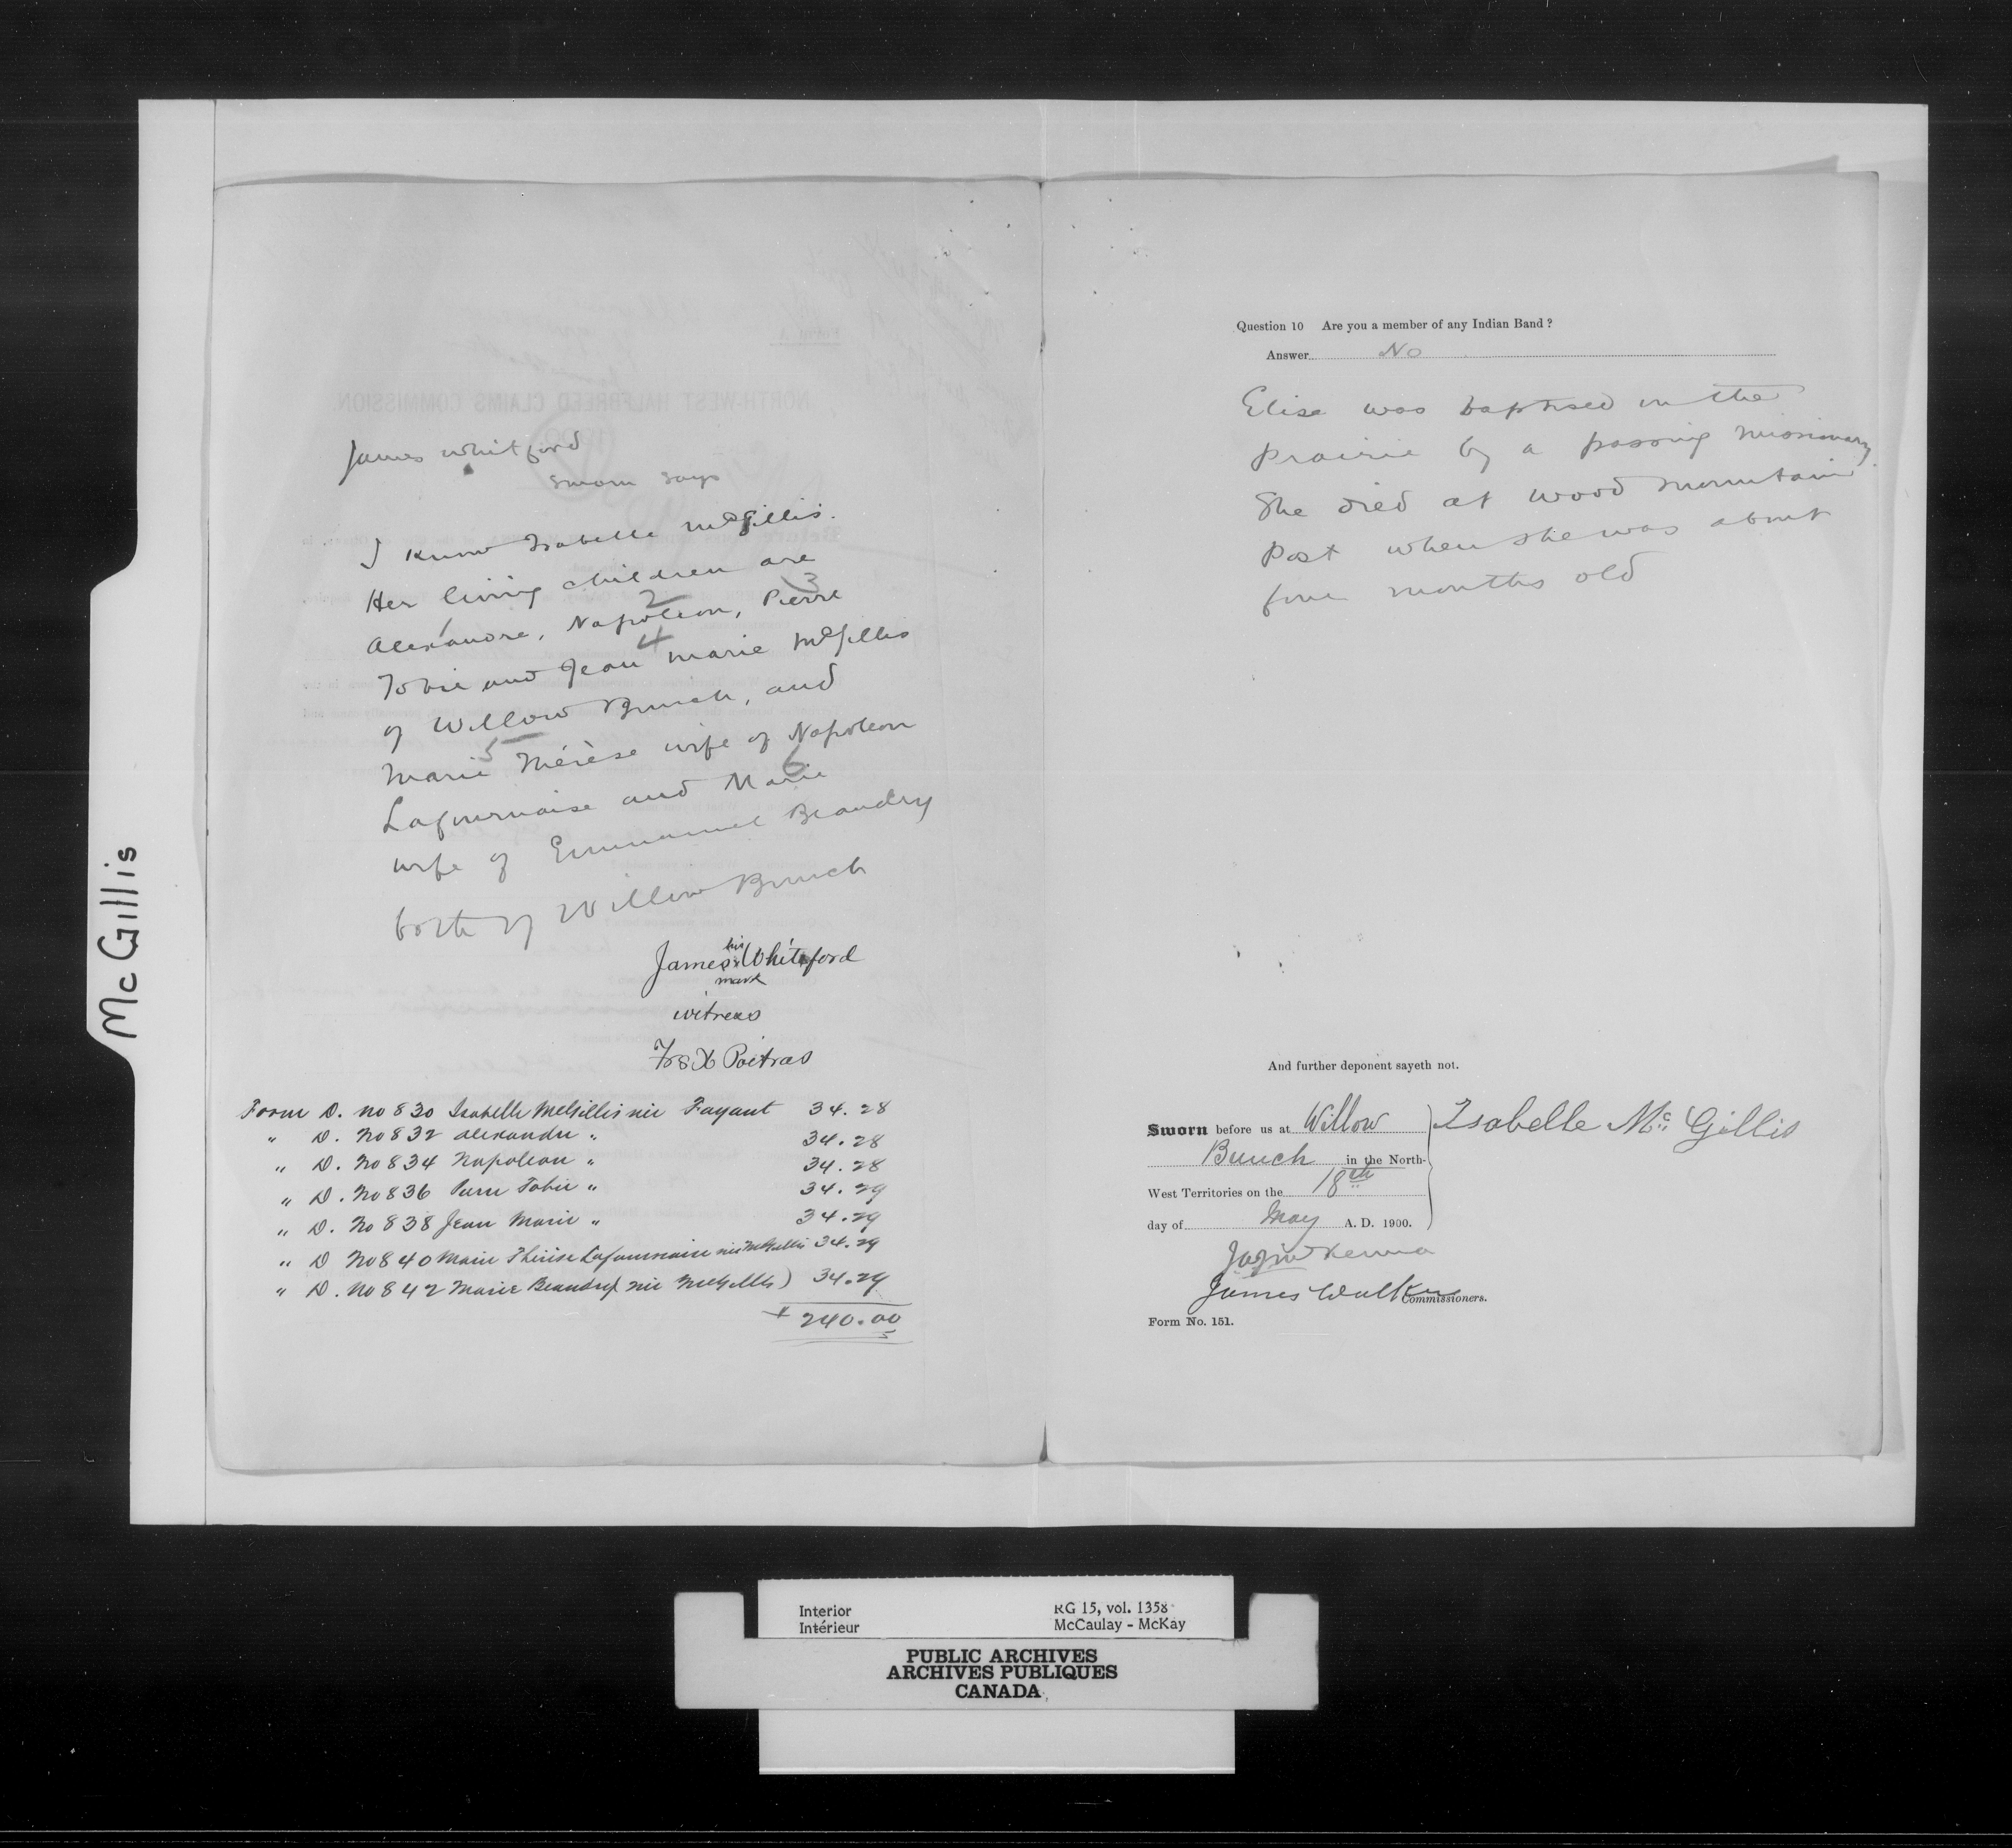 McGillis
James Whitford
sworn says
I know Isabelle McGillis.
Her living children are
1 2 3
Alexandre, Napoleon, Pierre
4
Tobie and Jean Marie McGillis
of Willow Bunch, and
5
Marie Thérèse wife of Napoleon
6
Lafournaise and Marie
wife of Emmanuel Beaudry
both of Willow Bunch
his
James x Whiteford
mark
witness
Frs X Poitras
Form D. No 830 Isabelle McGillis née Fayant 34.28
" D. No 832 Alexandre " 34.28
" D. No 834 Napoleon " 34.28
" D. No 836 Pierre Tobie " 34.29
" D. No 838 Jean Marie " 34.29
" D No 840 Marie Thérèse Lafournaise née McGillis 34.29
" D. No 842 Marie Beaudry (née McGillis) 34.29
240.00
NORTH-WEST HALFBREED CLAIMS COMMISSION.
Question 10 Are you a member of any Indian Band ?
Answer No
Elise was baptised in the
prairie by a passing missionary
She died at Wood Mountain
Post when she was about
four months old
And further deponent sayeth not.
Sworn before us at Willow
Bunch in the North-
West Territories on the 18th
day of May A. D. 1900.
Isabelle McGillis
James Walker
Commissioners.
Form No. 151.
Interior RG 15, vol. 1358
Intérieur McCaulay - McKay
PUBLIC ARCHIVES
ARCHIVES PUBLIQUES
CANADA